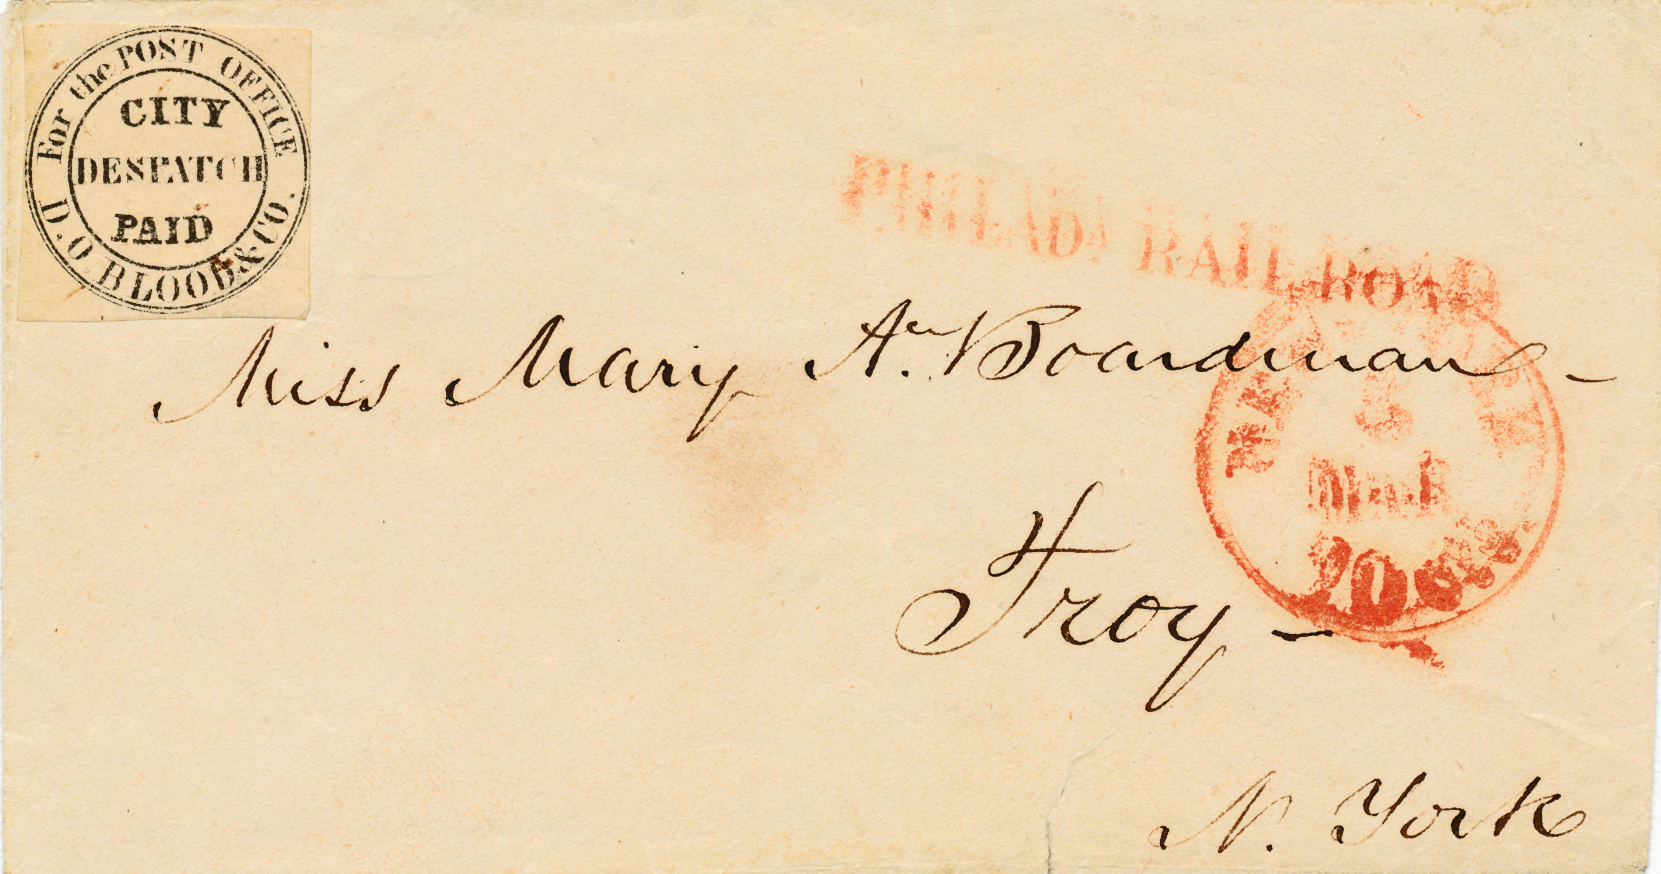 For the POST OFFICE
CITY
DESPATCH
PAID
D.O. BLOOD & CO.
PHILADA RAIL ROAD
Miss Mary A. Boardman -
5
MAR
10 cts.
Troy -
N. York